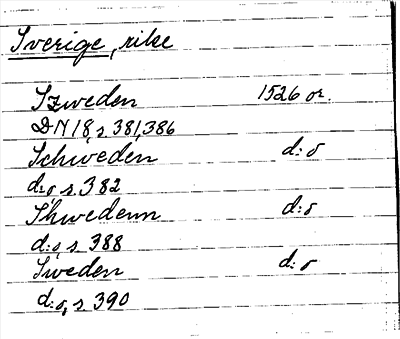 Sverige, rike
Szweden 1526 or.
DN 18, s. 381, 386
Schweden d:o
d:o s. 382
Shwedenn d:o
d:o s. 388
Sweden d:o
d:o, s. 390